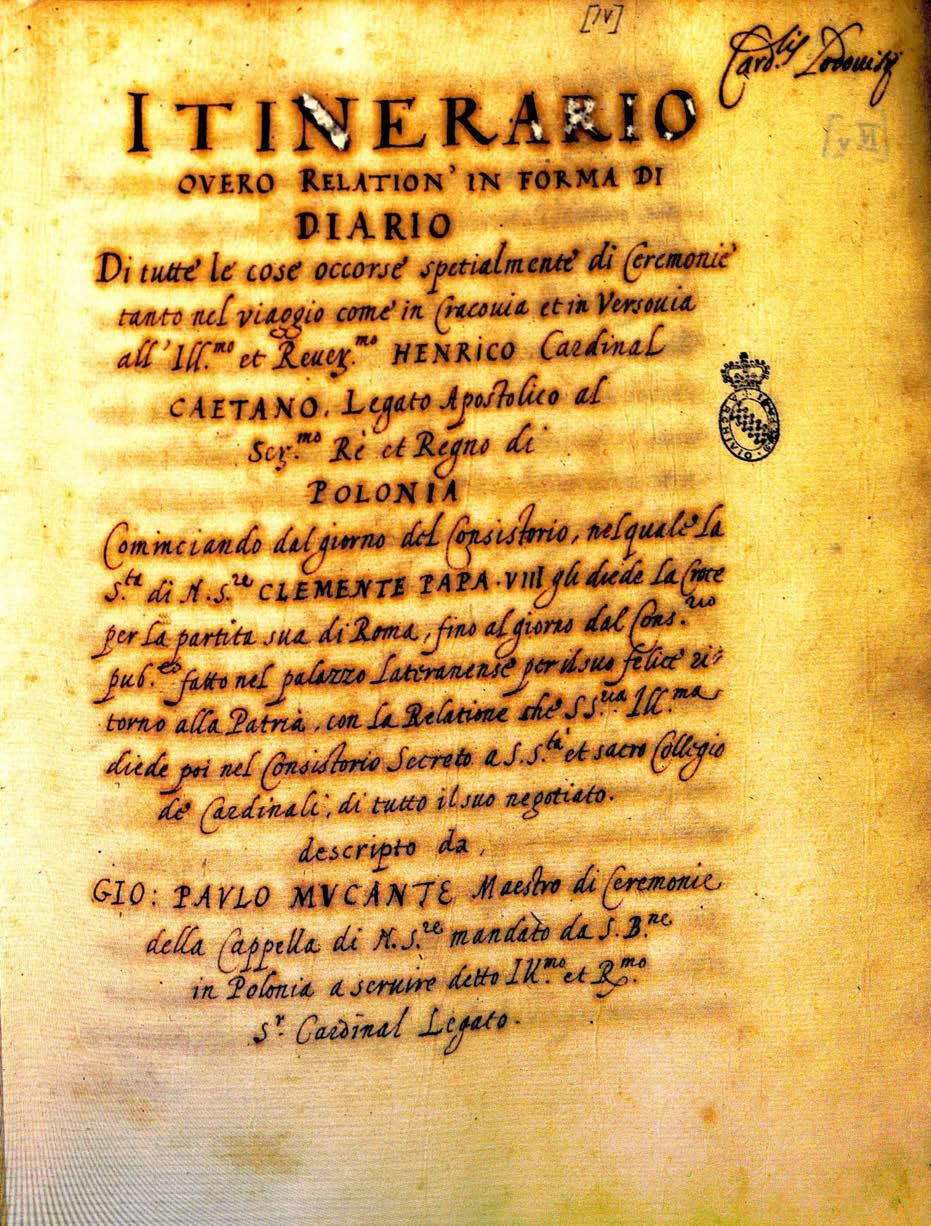 [IV]
Card.lis Lodouisij
[VII]
ITINERARIO
OVERO RELATION' IN FORMA DI
DIARIO
Di tutte le cose occorse spetialmente di Ceremonie
tanto nel viaggio come in Cracouia et in Versouia
all' Ill.mo et Reuer.mo HENRICO Cardinal
CAETANO. Legato Apostolico al
Ser.mo Rè et Regno di
POLONIA
Cominciando dal giorno del Consistorio, nel quale la
S.ta di N.S.re CLEMENTE PAPA.VIII gli diede la Croce
per la partita sua di Roma, fino al giorno dal Cons.rio
pub.co fatto nel palazzo Lateranense per il suo felice ri-
torno alla Patria, con la Relatione che S S.ria Ill.ma
diede poi nel Consistorio Secreto a S.S.tà et sacro Collegio
de Cardinali, di tutto il suo negotiato.
descripto da,
GIO: PAVLO MVCANTE Maestro di Ceremonie
della Cappella di N.S.re mandato da S.B.ne
in Polonia a seruire detto Ill.mo et R.mo
S.r Cardinal Legato.